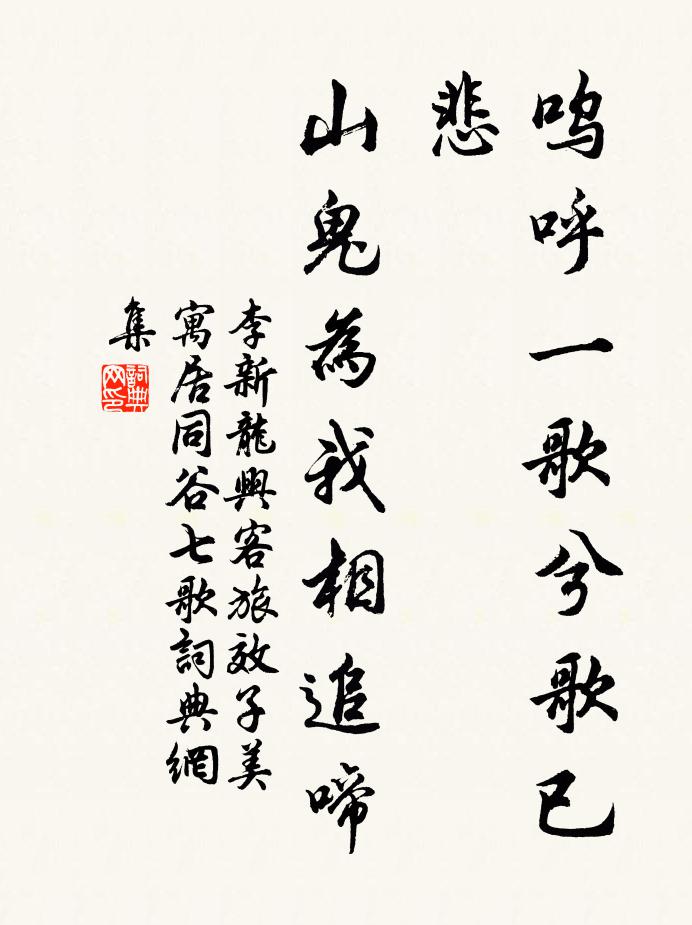 嗚呼一歌兮歌已
悲
山鬼為我相追啼
李新龍興客旅效子美
寓居同谷七歌詞典網
集
詞典
网印